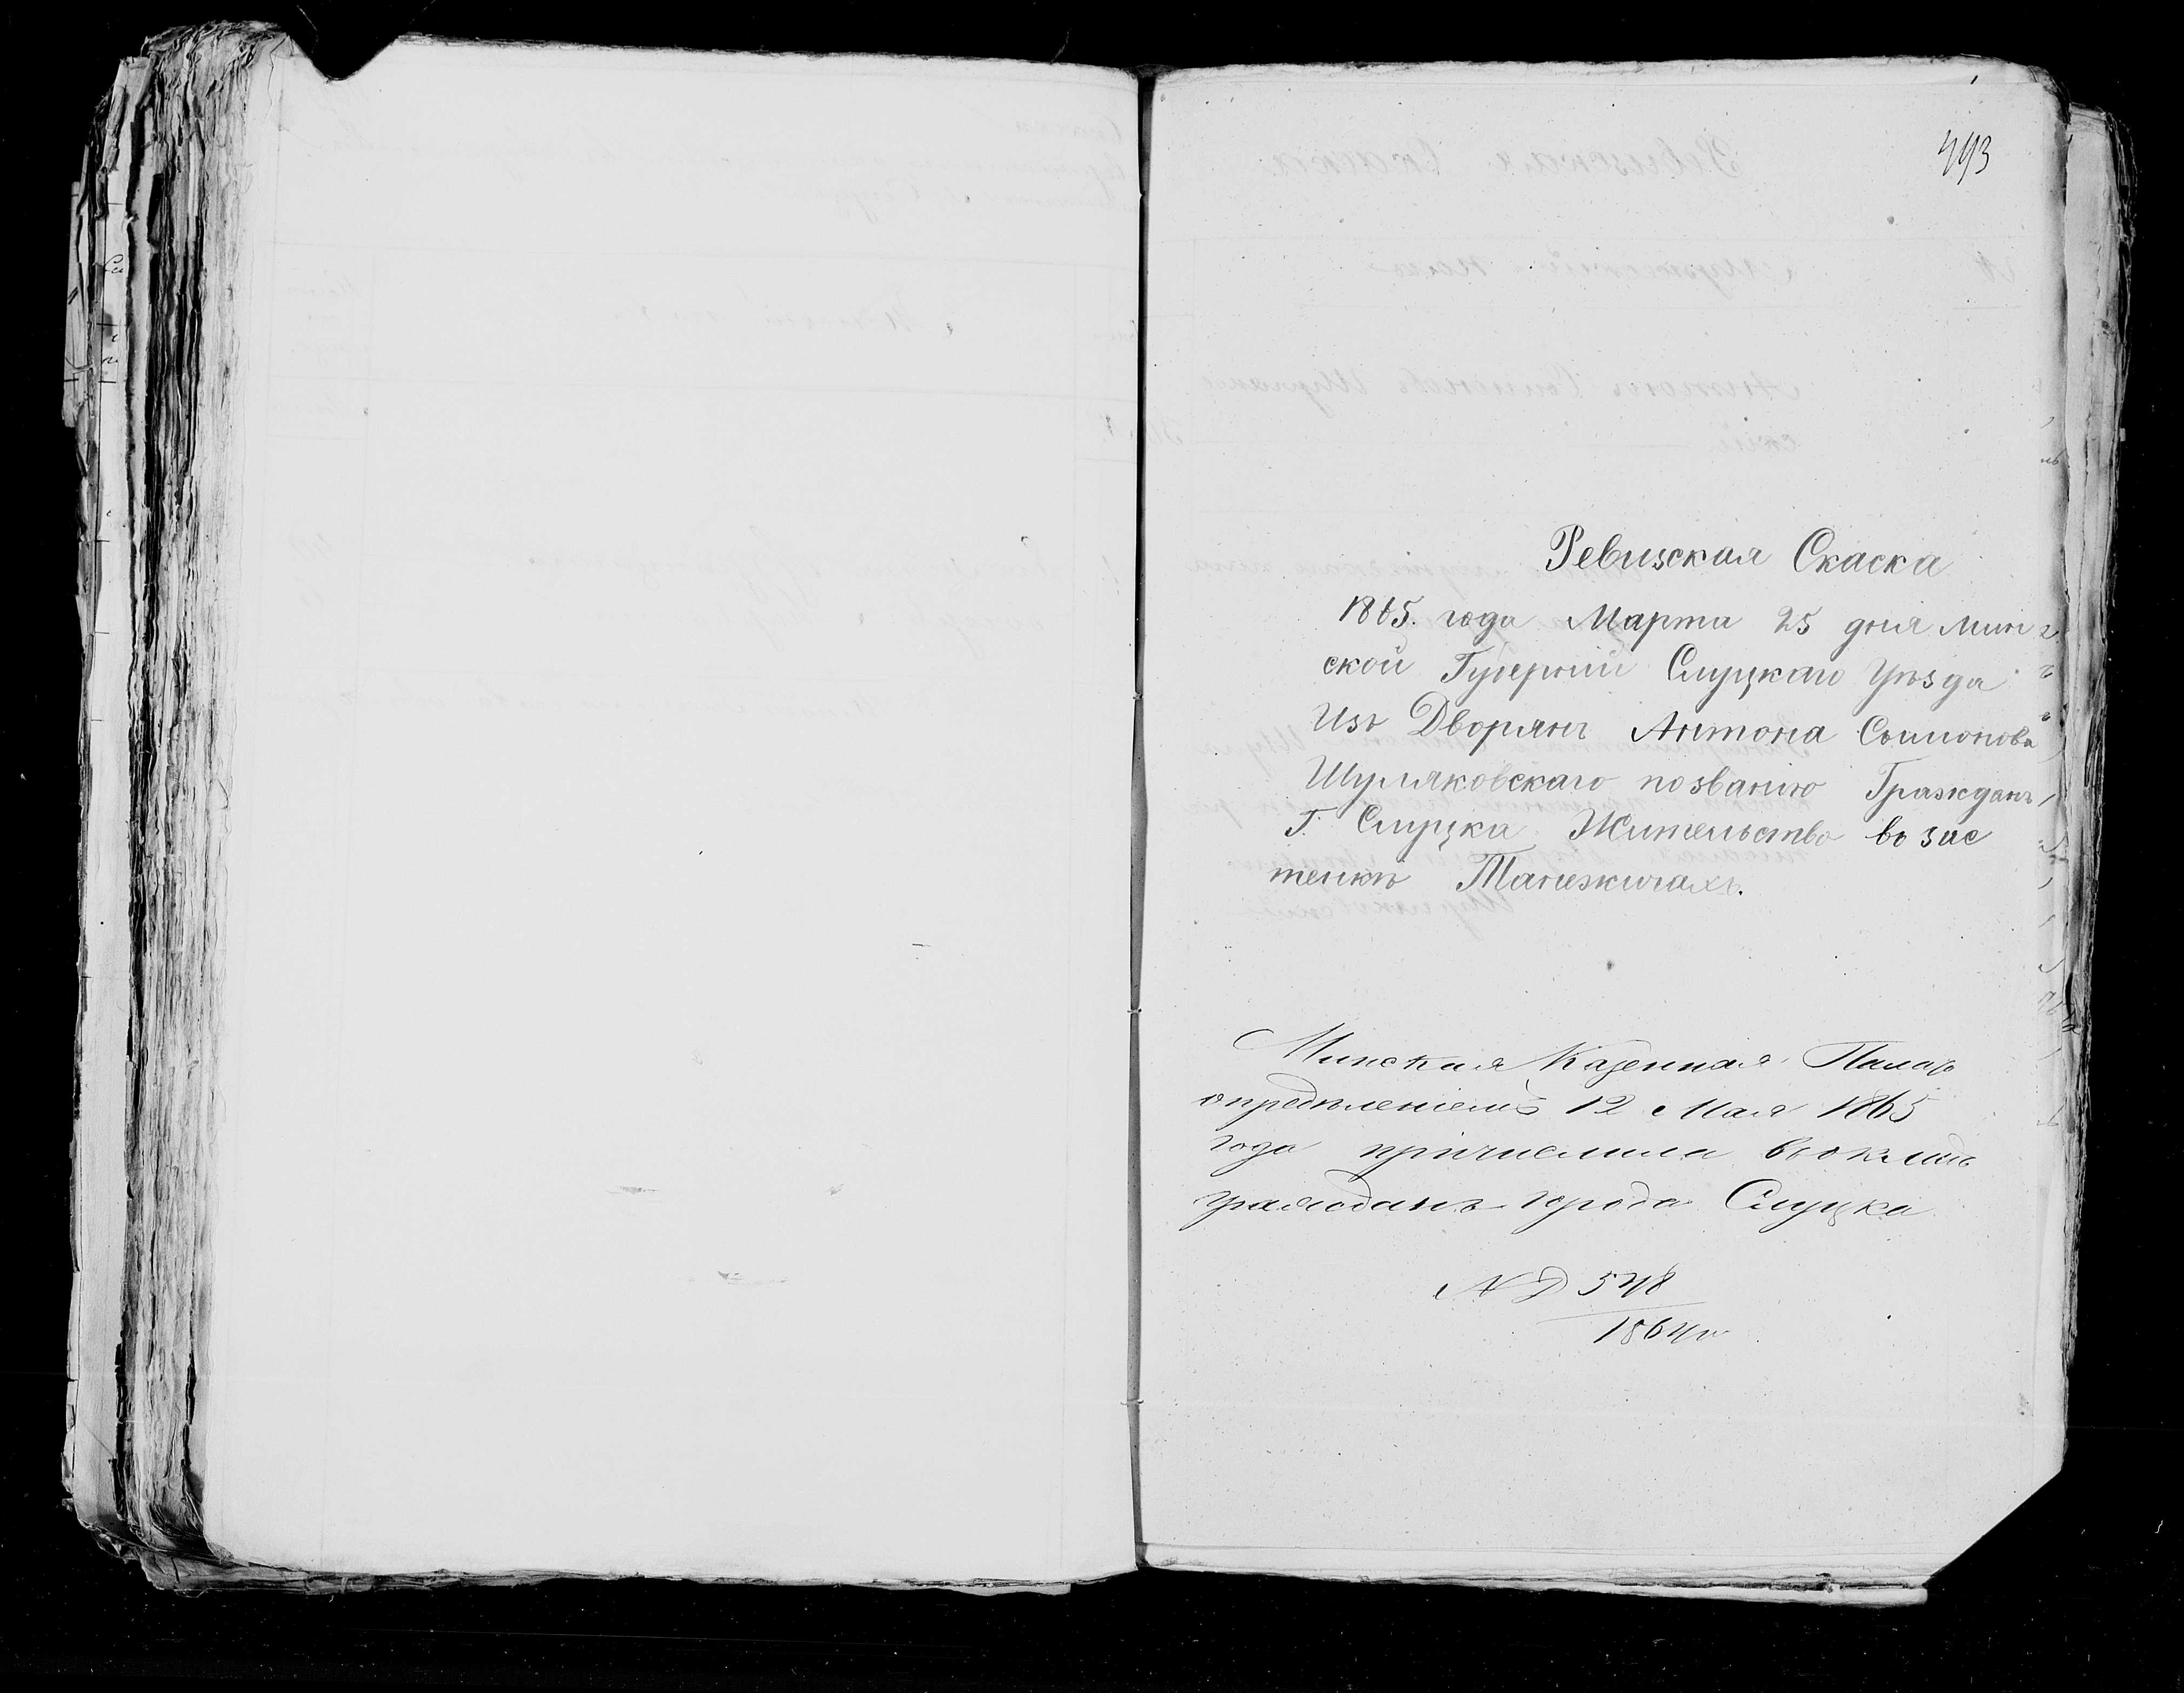 493
Ревизская Скаска
1865. года Марта 25 дня Мин
ской Губерніи Слуцкаго Уѣзда
Изъ Дворянъ Антона Сымонова
Шуляковскаго по званію Гражданъ
Г. Слуцка Жительство въ зас
тенкѣ
Минская Казенная Палат
опредѣленіемъ 12 Мая 1865
года причислила въ окладъ
гражданъ города Слуцка
N Д 548
1864 г